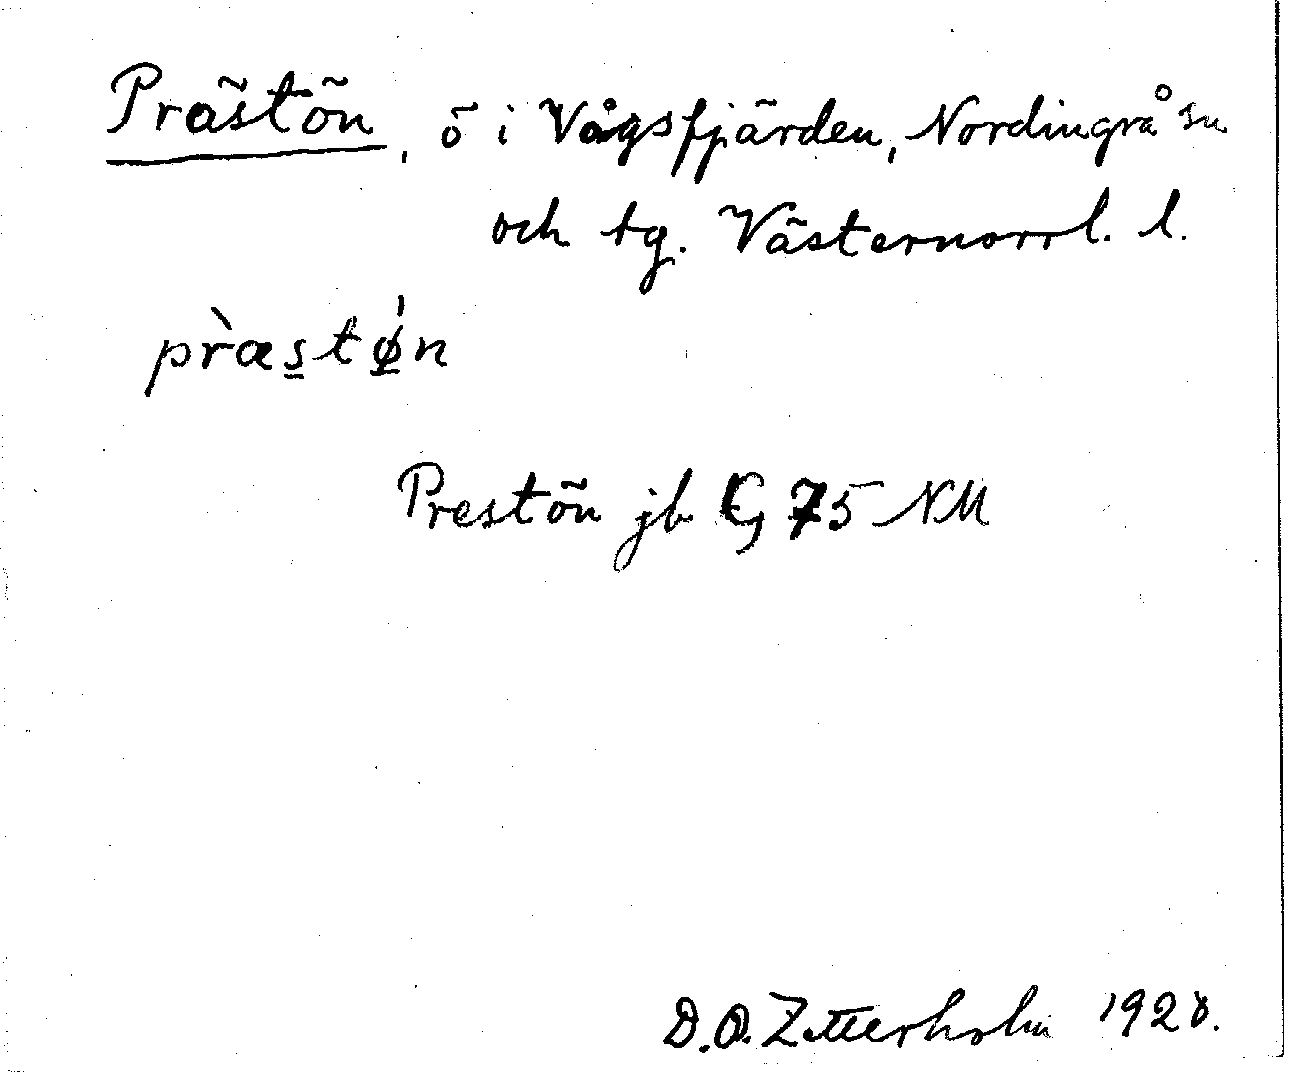 Prästön, ö i Vågsfjärden, Nordingrå sn
och tg. Västernorrl. l.
præstøn
Prestön jb G 75 NM
D.O. Zetterholm 1928.